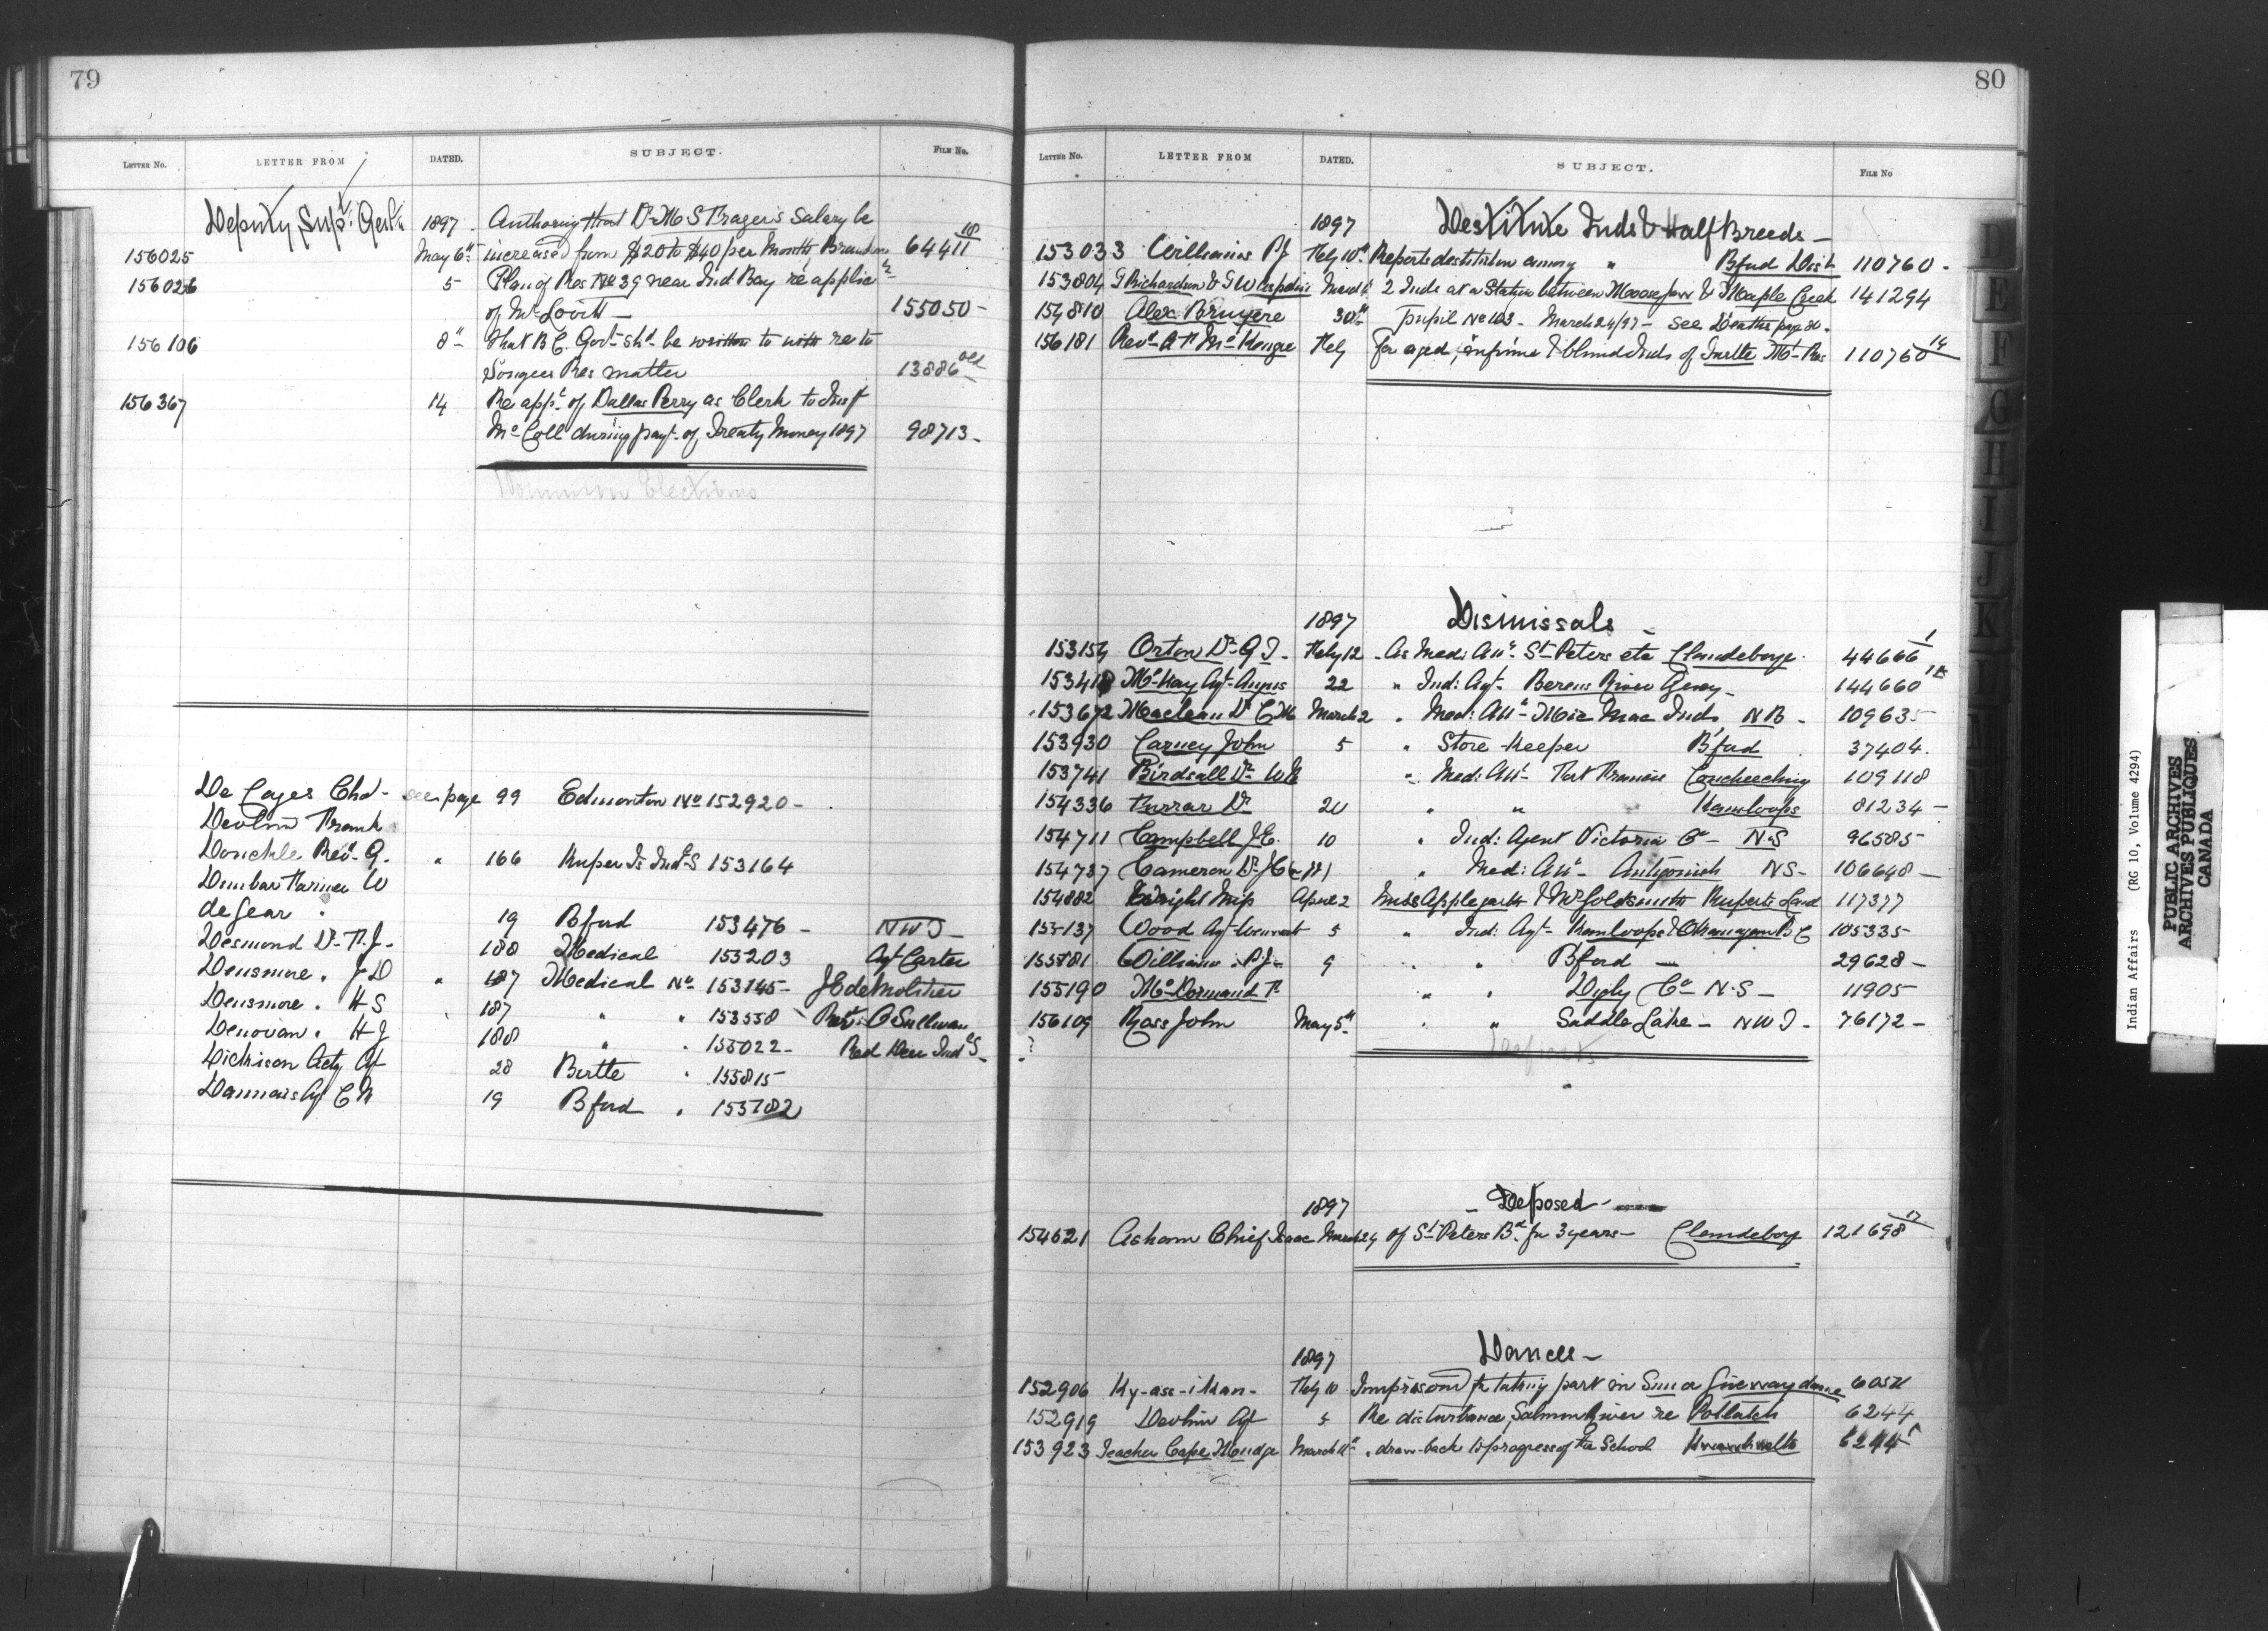 79
LETTER No. LETTER FROM DATED. SUBJECT. FILE No.
Deputy Supt Genl 1897 Authorizing that Dr M S Frazer's Salary be
156025 May 6th increased from $20 to $40 per Month Brandon 64411 108
156026 5 Plan of Res No 39 near Ind Bay re applic
of Mr Lovitt — 155050 -
156106 8th That B C. Govt shd be written to with re to
Songees Res matter 13886 old
156367 14 Re appt of Dallas Perry as Clerk to Insp
McColl during payt of Treaty Money 1897 98713 -
Dominion Elections
De Cazes Chd - see page 99 Edmonton No 152920 -
Devlin Frank
Donckle Rev. G. " 166 Kuper Is Indl S 153164
Dunbar Farmer W
de Gear . 19 Bford 153476 - NWT -
Desmond Dr F. J - 188 Medical 153203 Agt Carter
Densmore . J D " 187 Medical No 153145 - J E de Molitor
Densmore . H S 187 " " 153558 Revd O Sullivan
Denovan . H J 188 " . 155022 - Red Deer Indl S -
Dickison Actg Agt 28 Birtle . 155815
Dannais Agt C M 19 Bford . 153782
80
LETTER No. LETTER FROM DATED. SUBJECT. FILE No
1897 Destitute Inds & Half Breeds -
153033 Williams PJ Feby 10th Reports destitution among " Bford Dist 110760 .
153804 G Richardson & G W March 11 2 Inds at a Station between Moosejaw & Maple Creek 141294
154810 Alex Bruyere 30th Pupil No 103 - March 24/97 - see Deaths page 80 .
156181 Revd A McKonge Feby for aged, infirm & blind Inds of Turtle Mt Res 110760 14
1897 Dismissals -
153154 Orton Dr G T - Feby 12 . As Med: Att: St Peters etc Clandeboye . 44666 1
153418 McKay Agt Angus 22 " Ind: Agt - Berens River Agency - 144660 1A
153672 Maclean Dr C M March 2 . Med: Att - Mic Mac Inds NB - 109635
153930 Carney John 5 " Store Keeper Bford 37404 .
153741 Birdsall Dr W " Med: Att - Fort Francis Coucheeching 109118
154336 Furrar Dr 20 " " Kamloops 81234 -
154711 Campbell J E. 10 " Ind: Agent Victoria Co - N.S 96585
154737 Cameron Dr J C " Med: Att - Antigonish NS - 106648 -
154882 Wright Insp April 2 Miss Applegarth & Mr Goldsmith Ruperts Land 117377
155137 Wood Agt 5 " Ind: Agt - Kamloops & Okanagan B C 105335 -
155781 Williams . P J - 9 . " Bford — 29628 -
155190 McDormand F. " " Digby Co - N.S - 11905
156109 Ross John May 5th . " Saddle Lake - NWT - 76172 -
1897 - Deposed -
154621 Asham Chief Isaac March 24 of St Peters Bd for 3 years - Clandeboy 121698 17
1897 Dances -
152906 Ky-ass-i Kan - Feby 10 Imprisond for taking part in Sun or giveaway dance
152919 Devlin Agt 5 Re disturbance Salmon River re Potlatch 6244
153923 Teacher Cape Mudge March 11th . draw-back to progress of the School Kwawkwelth 6244
D
E
F
G
H
I
J
K
L
M
Indian Affairs (RG 10, Volume 4294)
PUBLIC ARCHIVES
ARCHIVES PUBLIQUES
CANADA